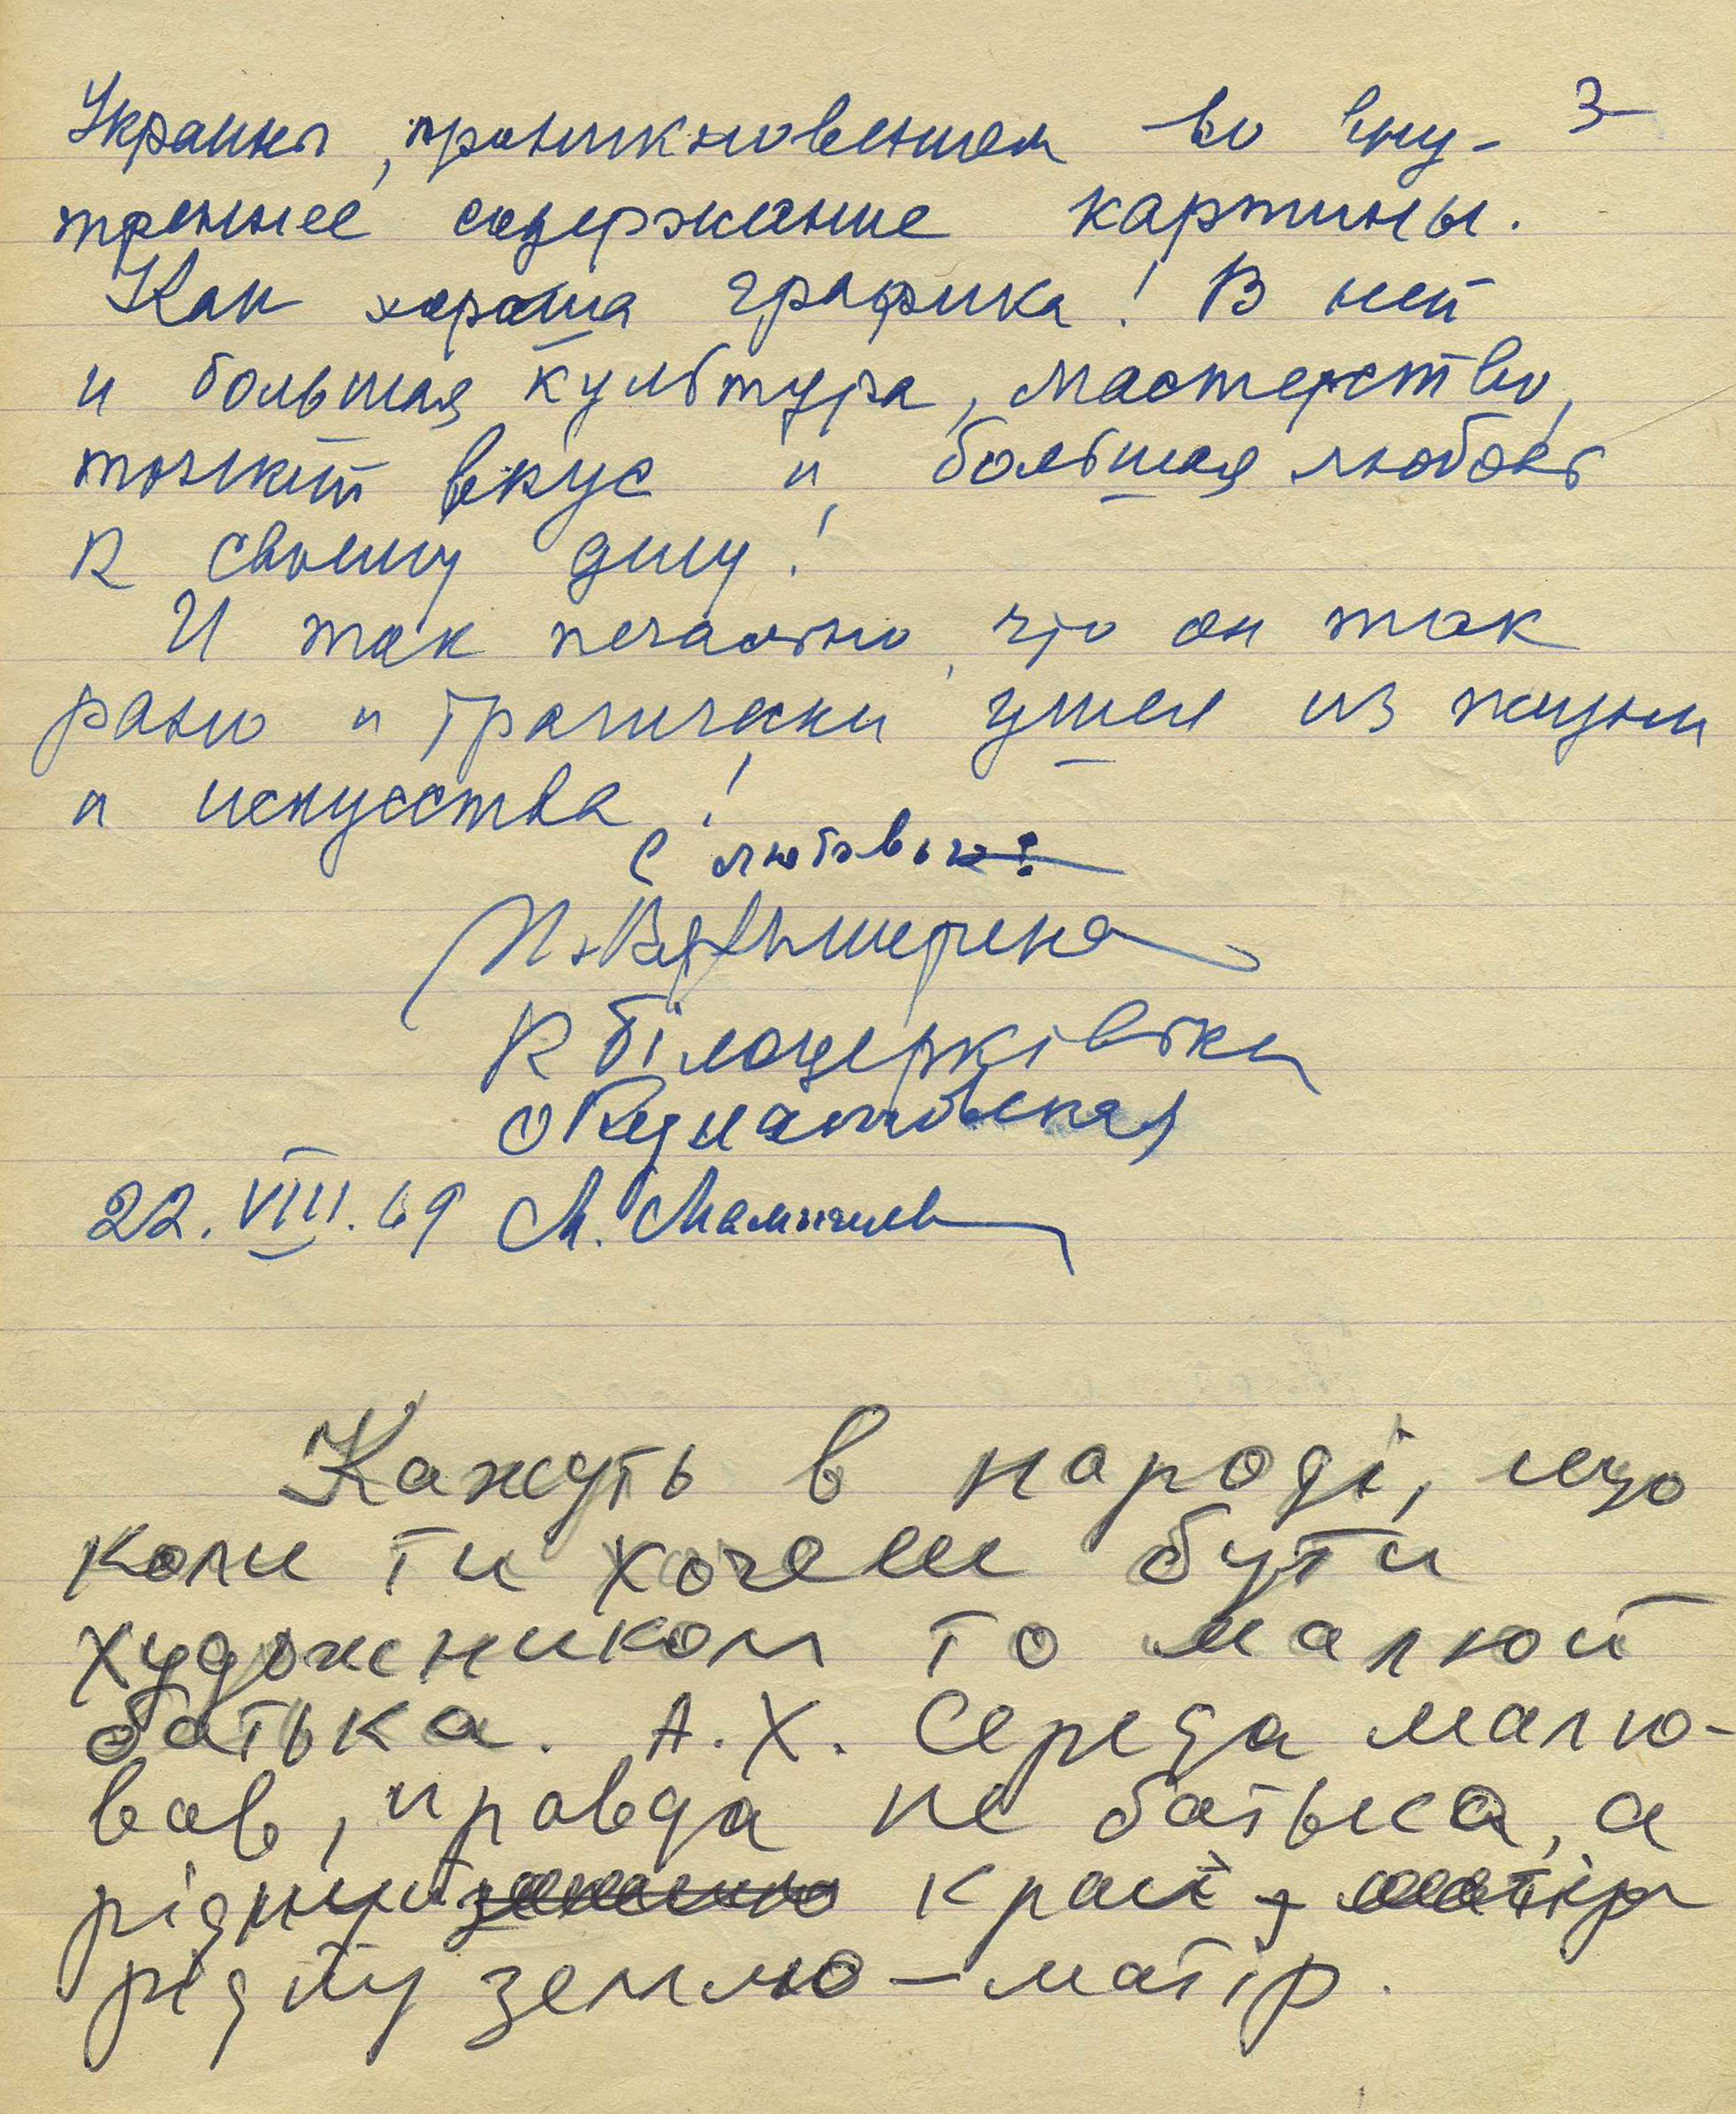 3
Украины, проникновением во вну-
треннее содержание картины.
Как хороша графика! В ней
и большая культура, мастерство,
тонкий вкус и большая любовь
к своему делу!
И так печально, что он так
рано и трагически ушел из жизни
и искусства!
С любовью:
К Білоцерківська
22.VIII.69 М.
Кажуть в народі, що
коли ти хочеш бути
художником то малюй
батька. А.Х. Середа малю-
вав, правда не батька, а
рідний землю край, матір
рідну землю – матір.